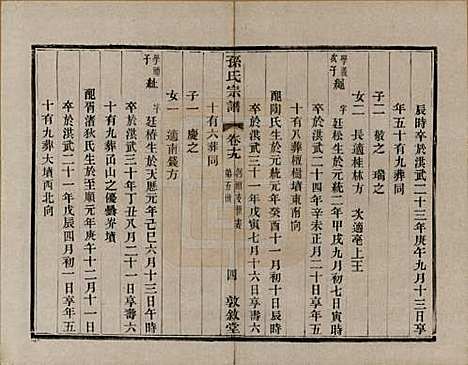 辰時卒於洪武二十三年庚午九月十三日享
年五十有九葬同
子二 敬之 瑞之
女二 長適桂林方 次適亳上王
字廷松生於元統二年甲戌九月初七日寅時
卒於洪武二十四年辛未正月二十一日享年五
十有八葬檀樹墳東南向
配陶氏生於元統元年癸酉十一月初十日辰時
卒於洪武三十一年戊寅七月十六日享壽六
十有六葬同
孫氏宗譜
卷十九
第五世
四
敦敘堂
子一 慶之
女一 適南錢方
字廷椿生於天歷元年己巳六月十三日午時
卒於洪武三十年丁丑八月二十一日享壽六
十有九葬甬山之優曇莽墳
配胥渚狄氏生於至順元年庚午十二月十一日
卒於洪武二十一年戊辰四月初一日享年五
十有九葬大墳西北向